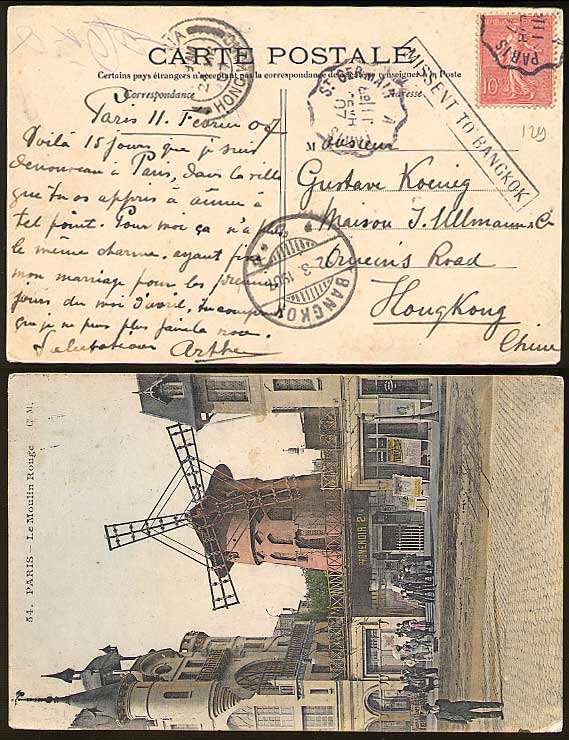 CARTE POSTALE
Certains pays étrangers n'acceptant pas la correspondance de ce côté, se renseigner à la Poste
Correspondance
Adresse
Paris 11. Février 07
Voilà 15 jours que je suis
de nouveau à Paris, dans la ville
que tu as appris à aimer à
tel point. Pour moi ça n'a plus
le même charme. ayant fixé
mon mariage pour les premiers
jours du mois d'avril, tu comprends
que je ne puis plus faire la noce.
Salutations
M onsieur
Gustave Koenig
Maison J. Ullmann & Co
Queen's Road
HongKong
Chine
129
MISSENT TO BANGKOK
PARIS
10
ST GERMAIN A
PARIS
07
HONG
BANGKOK
3
54. PARIS – Le Moulin Rouge C. M.